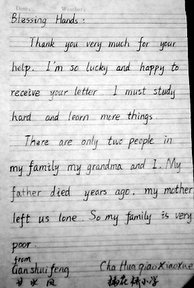 Blessing Hands:
Thank you very much for your
help. I'm so lucky and happy to
receive your letter I must study
hard and learn more things.
There are only two people in
my family my grandma and I. My
father died years ago, my mother
left us lone. So my family is very
poor.
from
Gan shui feng Cha Hua qiao Xiaoxue